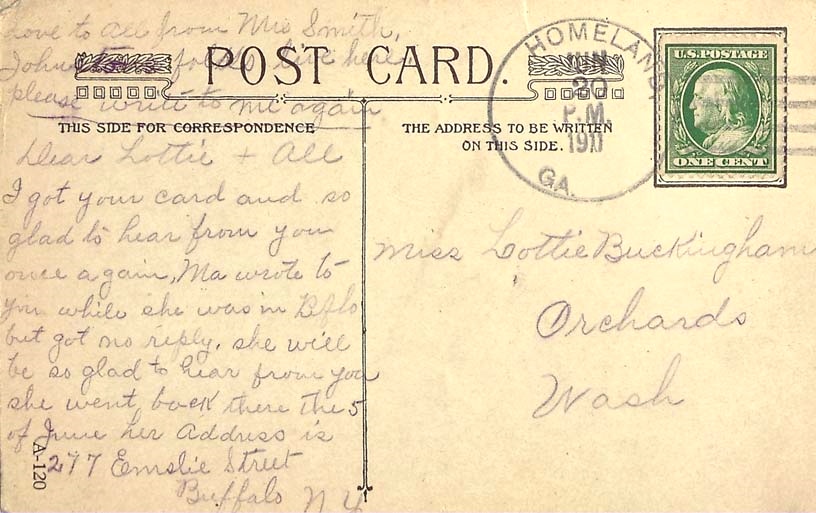 love to all from Mrs Smith,
John folks live here
please write to me again
POST CARD.
THIS SIDE FOR CORRESPONDENCE
THE ADDRESS TO BE WRITTEN
ON THIS SIDE.
HOMELAND,
JUN
20
P.M.
1911
GA.
U.S. POSTAGE
ONE CENT
Dear Lottie + All
I got your card and so
glad to hear from you
once again, Ma wrote to
you while she was in Bflo
but got no reply. she will
be so glad to hear from you
she went back there the 5
of June her Address is
277 Emslie Street
Buffalo N Y
A-120
Miss Lottie Buckingham
Orchards
Wash